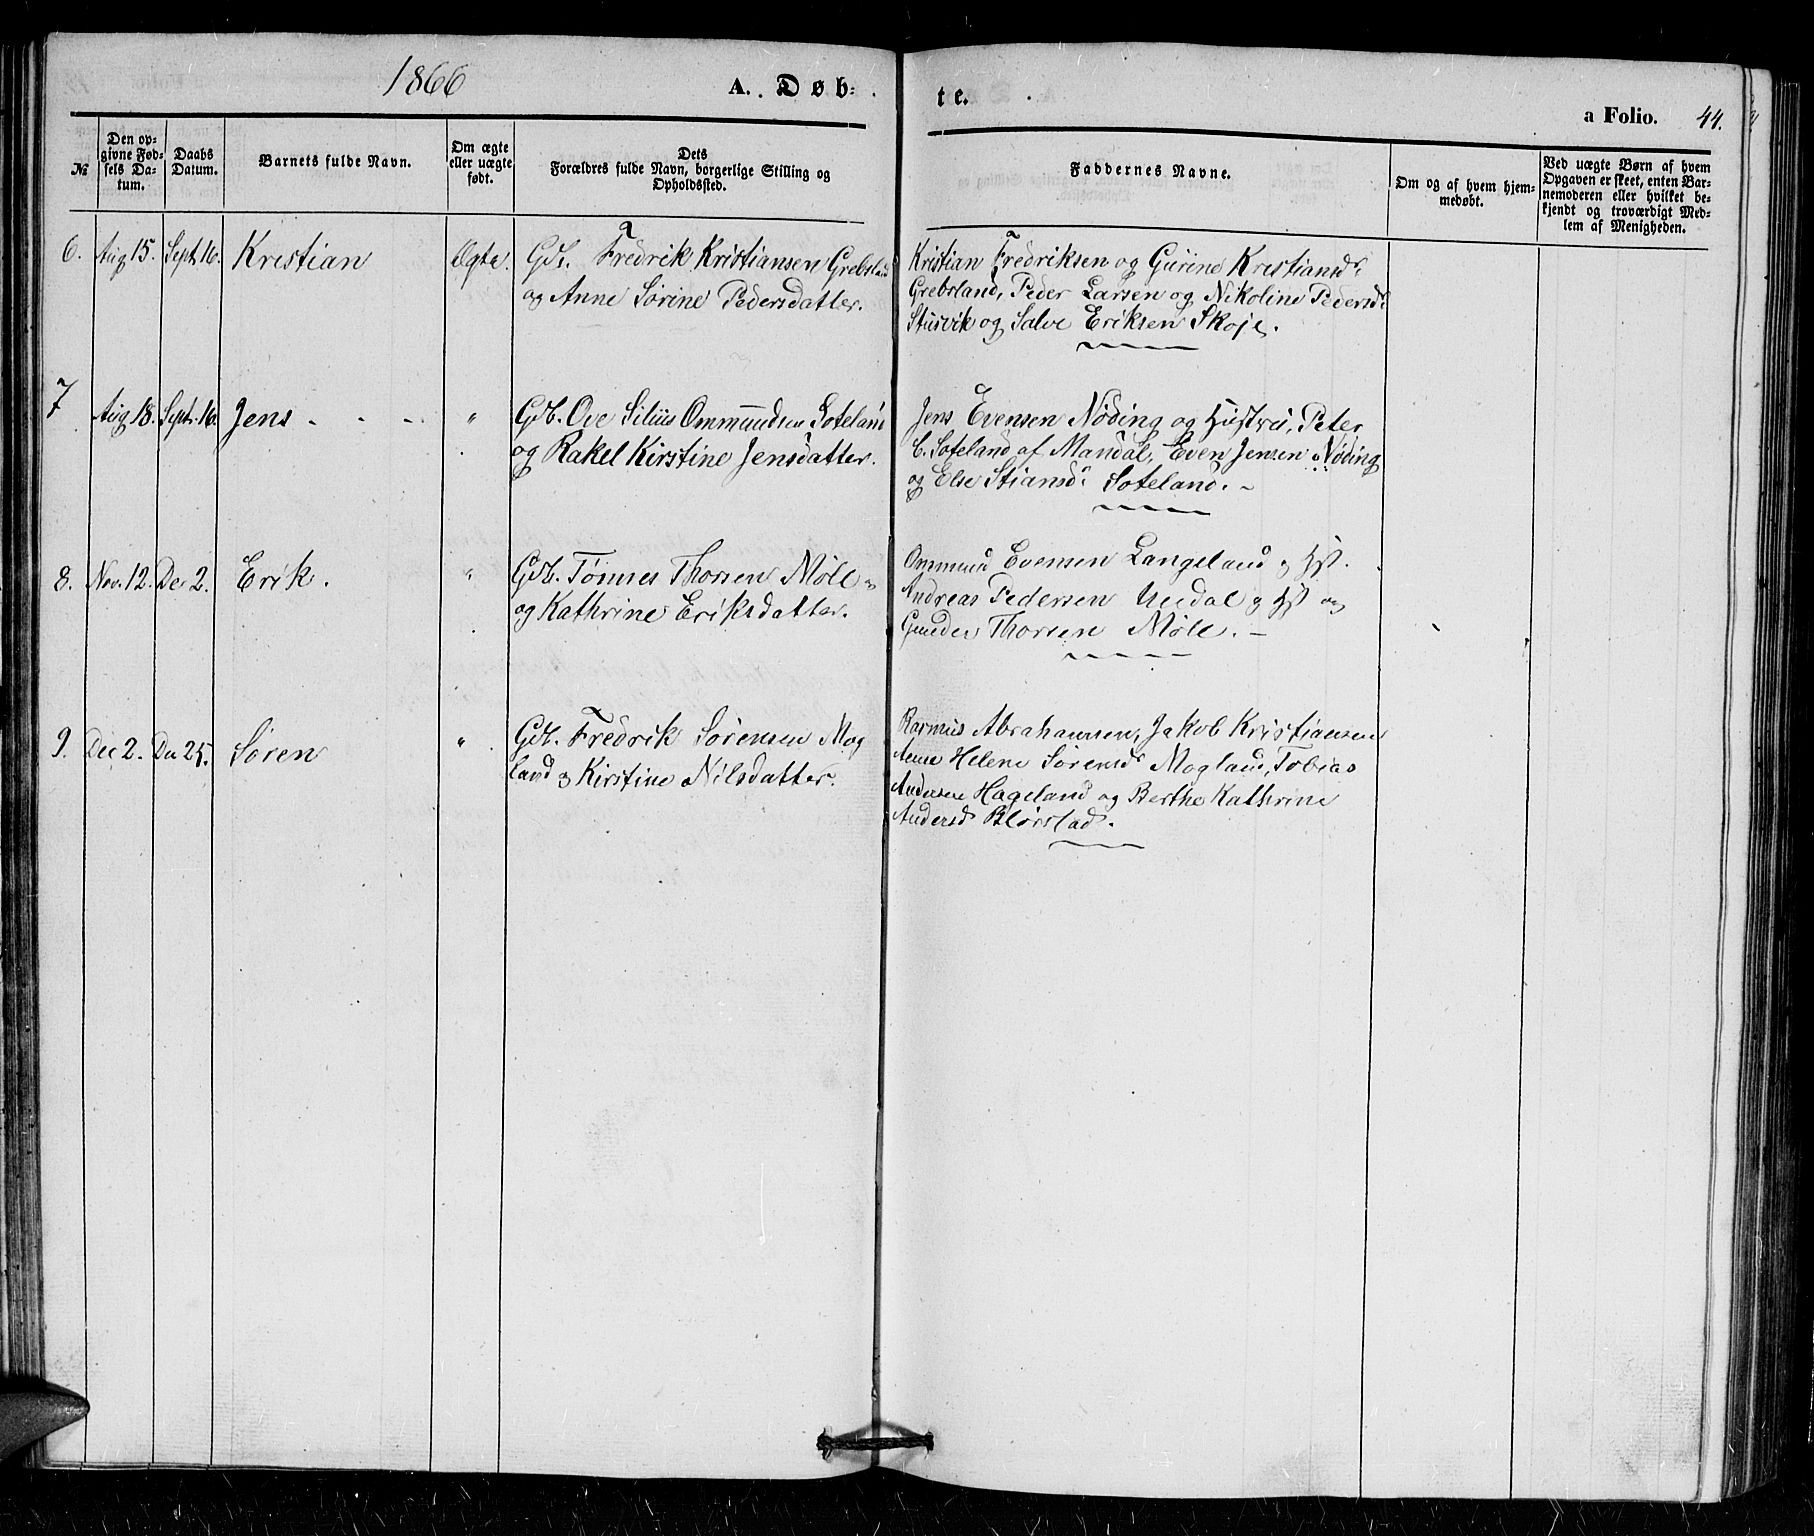 1866
A. Døb-
te.
a Folio. 44.
№
Den op-
givne Fød-
sels Da-
tum.
Daabs
Datum.
Barnets fulde Navn.
Om ægte
eller uægte
født.
Dets
Forældres fulde Navn, borgerlige Stilling og
Opholdssted.
Faddernes Navne.
Om og af hvem hjem-
medøbt.
Ved uægte Børn af hvem
Opgaven er skeet, enten Bar-
nemoderen eller hvilket be-
kjendt og troværdigt Med-
lem af Menigheden.
6. Aug 15. Sept. 16. Kristian Ægte. Gdb. Fredrik Kristiansen Grebsland
og Anne Sørine Pedersdatter.
Kristian Fredriksen og Gurine Kristiansd.
Grebsland, Peder Larsen og Nikoline Pedersd.
Stusvik og Salve Eriksen Skoje.
7 Aug 18. Sept. 16. Jens - - - " Gdb. Ove Silius Ommundsen Soteland
og Rakel Kirstine Jensdatter.
Jens Evensen Nøding og Hustru, Peter
C. Soteland af Mandal, Even Jensen Nøding
og Else Stiansd. Soteland. -
8. Nov. 12. Dec 2. Erik. " Gdb. Tønnes Thorsen Møll-
og Kathrine Eriksdatter.
Ommund Evensen Langeland og Hst.
Andreas Pedersen Uedal og Hst og
Gunder Thorsen Møll. -
9. Dec 2. Dec 25. Søren " Gdb. Fredrik Sørensen Mog
land og Kirstine Nilsdatter.
Rasmus Abrahamsen, Jakob Kristiansen
Anne Helene Sørensd Mogland, Tobias
Andersen Hageland og Berthe Kathrine
Andersd